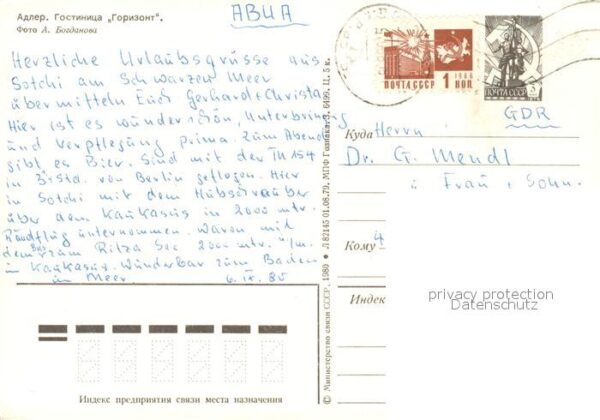 Адлер. Гостиница „Горизонт".
Фото А. Богданова
АВИА
Herzliche Urlaubsgrüsse aus
Sotchi am Schwarzen Meer
übermitteln Euch Gerhard + Christa
Hier ist es wunderschön, Unterbringung
und Verpflegung prima. Zum Abend
gibt es Bier. Sind mit der TU 154
in 2½ Std. von Berlin geflogen. Hier
in Sotchi mit dem Hubschrauber
über dem Kaukasus in 2000 mtr.
Rundflug unternommen. Waren mit
dem Bus zum Ritza See 2000 mtr. ü/m.
im Kaukasus. Wunderbar zum Baden
im Meer. 6. IX. 85
© Министерство связи СССР, 1980 ● Л 82145 01.08.79. МПФ Гознака. З. 6499. Ц. 5 к.
1966
ПОЧТА СССР 1 КОП.
ПОЧТА СССР
GDR
Куда Herrn
Dr. G. Mendl
u Frau, Sohn.
Кому 4
Индекс
privacy protection
Datenschutz
Индекс предприятия связи места назначения